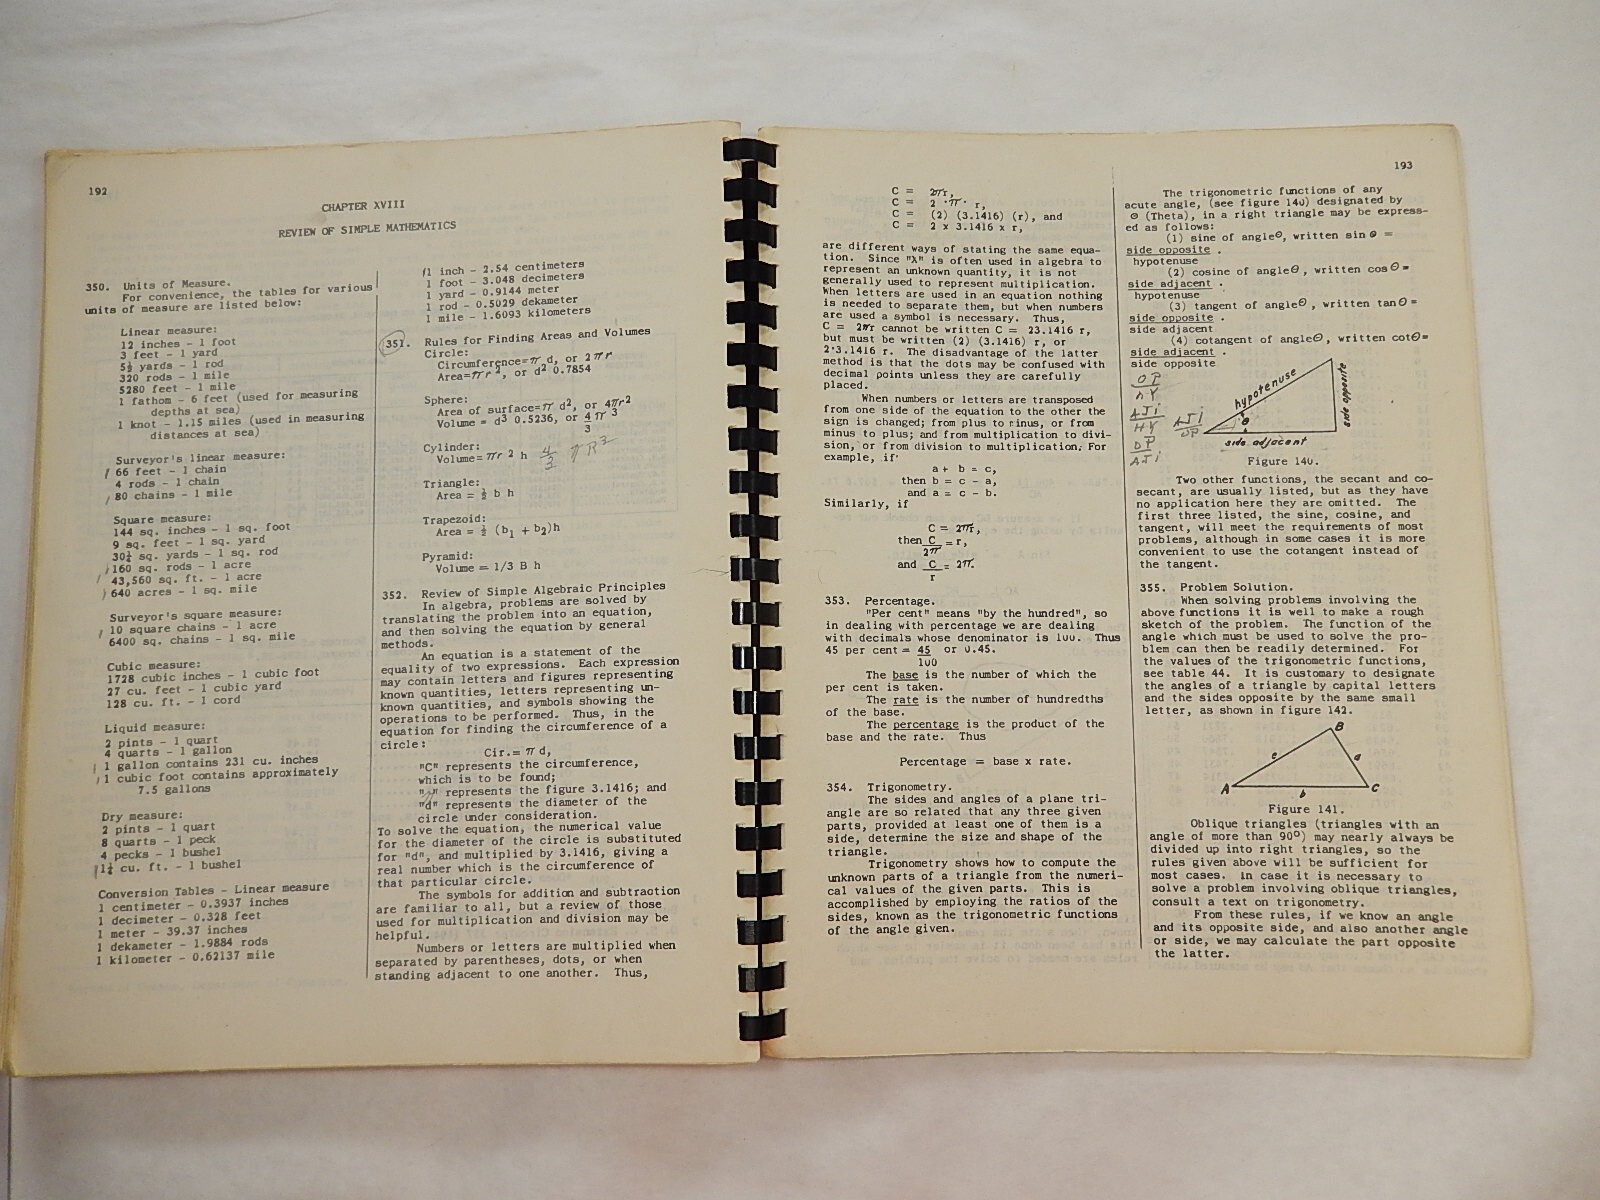 192
CHAPTER XVIII
REVIEW OF SIMPLE MATHEMATICS
350. Units of Measure.
For convenience, the tables for various
units of measure are listed below:
Linear measure:
12 inches - 1 foot
3 feet - 1 yard
5½ yards - 1 rod
320 rods - 1 mile
5280 feet - 1 mile
1 fathom - 6 feet (used for measuring
depths at sea)
1 knot - 1.15 miles (used in measuring
distances at sea)
Surveyor's linear measure:
66 feet - 1 chain
4 rods - 1 chain
80 chains - 1 mile
Square measure:
144 sq. inches - 1 sq. foot
9 sq. feet - 1 sq. yard
30¼ sq. yards - 1 sq. rod
160 sq. rods - 1 acre
43,560 sq. ft. - 1 acre
640 acres - 1 sq. mile
Surveyor's square measure:
10 square chains - 1 acre
6400 sq. chains - 1 sq. mile
Cubic measure:
1728 cubic inches - 1 cubic foot
27 cu. feet - 1 cubic yard
128 cu. ft. - 1 cord
Liquid measure:
2 pints - 1 quart
4 quarts - 1 gallon
1 gallon contains 231 cu. inches
1 cubic foot contains approximately
7.5 gallons
Dry measure:
2 pints - 1 quart
8 quarts - 1 peck
4 pecks - 1 bushel
1¼ cu. ft. - 1 bushel
Conversion Tables - Linear measure
1 centimeter - 0.3937 inches
1 decimeter - 0.328 feet
1 meter - 39.37 inches
1 dekameter - 1.9884 rods
1 kilometer - 0.62137 mile
1 inch - 2.54 centimeters
1 foot - 3.048 decimeters
1 yard - 0.9144 meter
1 rod - 0.5029 dekameter
1 mile - 1.6093 kilometers
351. Rules for Finding Areas and Volumes
Circle:
Circumference=π d, or 2πr
Area=πr², or d² 0.7854
Sphere:
Area of surface=π d², or 4πr²
Volume = d³ 0.5236, or 4 π 3
3
Cylinder:
Volume=πr 2 h 4/3 πR²
Triangle:
Area = ½ b h
Trapezoid:
Area = ½ (b1 + b2)h
Pyramid:
Volume = 1/3 B h
352. Review of Simple Algebraic Principles
In algebra, problems are solved by
translating the problem into an equation,
and then solving the equation by general
methods.
An equation is a statement of the
equality of two expressions. Each expression
may contain letters and figures representing
known quantities, letters representing un-
known quantities, and symbols showing the
operations to be performed. Thus, in the
equation for finding the circumference of a
circle:
Cir.= π d,
"C" represents the circumference,
which is to be found;
"π" represents the figure 3.1416; and
"d" represents the diameter of the
circle under consideration.
To solve the equation, the numerical value
for the diameter of the circle is substituted
for "d", and multiplied by 3.1416, giving a
real number which is the circumference of
that particular circle.
The symbols for addition and subtraction
are familiar to all, but a review of those
used for multiplication and division may be
helpful.
Numbers or letters are multiplied when
separated by parentheses, dots, or when
standing adjacent to one another. Thus,
193
C = 2πr,
C = 2 · π · r,
C = (2) (3.1416) (r), and
C = 2 x 3.1416 x r,
are different ways of stating the same equa-
tion. Since "X" is often used in algebra to
represent an unknown quantity, it is not
generally used to represent multiplication.
When letters are used in an equation nothing
is needed to separate them, but when numbers
are used a symbol is necessary. Thus,
C = 2πr cannot be written C = 23.1416 r,
but must be written (2) (3.1416) r, or
2·3.1416 r. The disadvantage of the latter
method is that the dots may be confused with
decimal points unless they are carefully
placed.
When numbers or letters are transposed
from one side of the equation to the other the
sign is changed; from plus to rinus, or from
minus to plus; and from multiplication to divi-
sion, or from division to multiplication. For
example, if
a + b = c,
then b = c - a,
and a = c - b.
Similarly, if
C = 2πr,
then C = r,
2π
and C = 2π.
r
353. Percentage.
"Per cent" means "by the hundred", so
in dealing with percentage we are dealing
with decimals whose denominator is 100. Thus
45 per cent = 45 or 0.45.
100
The base is the number of which the
per cent is taken.
The rate is the number of hundredths
of the base.
The percentage is the product of the
base and the rate. Thus
Percentage = base x rate.
354. Trigonometry.
The sides and angles of a plane tri-
angle are so related that any three given
parts, provided at least one of them is a
side, determine the size and shape of the
triangle.
Trigonometry shows how to compute the
unknown parts of a triangle from the numeri-
cal values of the given parts. This is
accomplished by employing the ratios of the
sides, known as the trigonometric functions
of the angle given.
The trigonometric functions of any
acute angle, (see figure 140) designated by
θ (Theta), in a right triangle may be express-
ed as follows:
(1) sine of angleθ, written sin θ =
side opposite .
hypotenuse
(2) cosine of angleθ, written cosθ=
side adjacent .
hypotenuse
(3) tangent of angleθ, written tanθ=
side opposite .
side adjacent
(4) cotangent of angleθ, written cotθ=
side adjacent .
side opposite
OP
HY
AJi
HY
OP
AJi
AJi
OP
hypotenuse
side opposite
θ
side adjacent
Figure 140.
Two other functions, the secant and co-
secant, are usually listed, but as they have
no application here they are omitted. The
first three listed, the sine, cosine, and
tangent, will meet the requirements of most
problems, although in some cases it is more
convenient to use the cotangent instead of
the tangent.
355. Problem Solution.
When solving problems involving the
above functions it is well to make a rough
sketch of the problem. The function of the
angle which must be used to solve the pro-
blem can then be readily determined. For
the values of the trigonometric functions,
see table 44. It is customary to designate
the angles of a triangle by capital letters
and the sides opposite by the same small
letter, as shown in figure 142.
B
c
a
A
b
C
Figure 141.
Oblique triangles (triangles with an
angle of more than 90°) may nearly always be
divided up into right triangles, so the
rules given above will be sufficient for
most cases. In case it is necessary to
solve a problem involving oblique triangles,
consult a text on trigonometry.
From these rules, if we know an angle
and its opposite side, and also another angle
or side, we may calculate the part opposite
the latter.